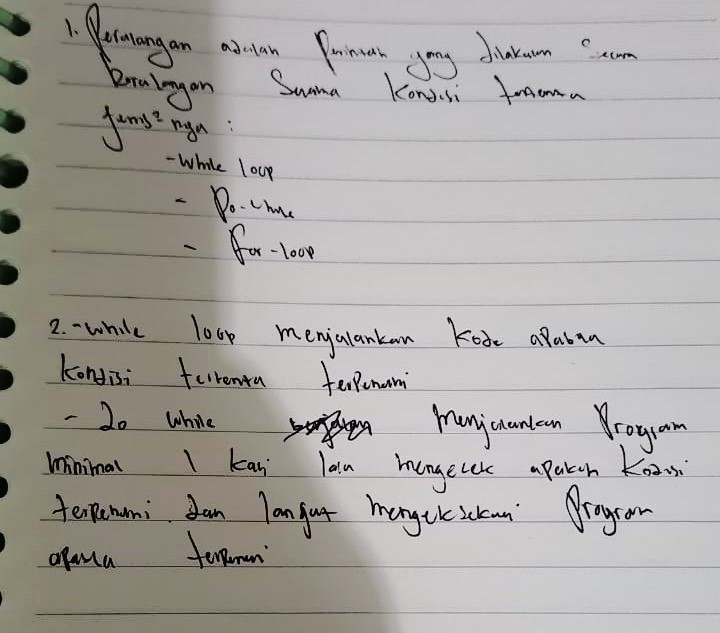 1. Perulangan adalah Perintah yang dilakukan secara
berulangan Suama kondisi tertentu
Jenis² nya :
- While loop
- Do-while
- for-loop
2. - while loop menjalankan kode apabila
kondisi tertentu terpenuhi
- Do while menjalankan Program
minimal 1 kali lalu mengecek apakah Kodisi
terpenuhi dan langut mengeksekusi Program
apabila terpenuhi